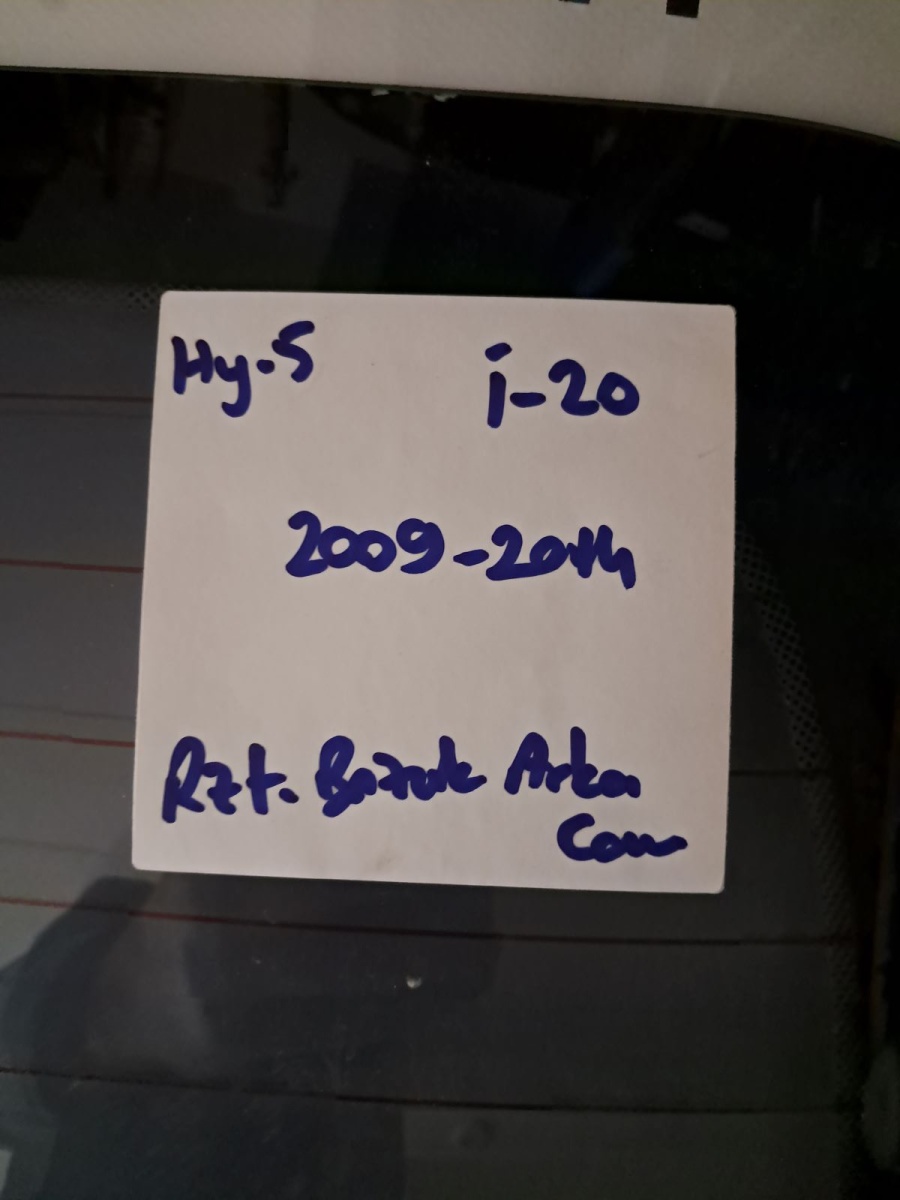 Hy-5 i-20
2009-2014
Rzt. Bozuk Arka
Cam